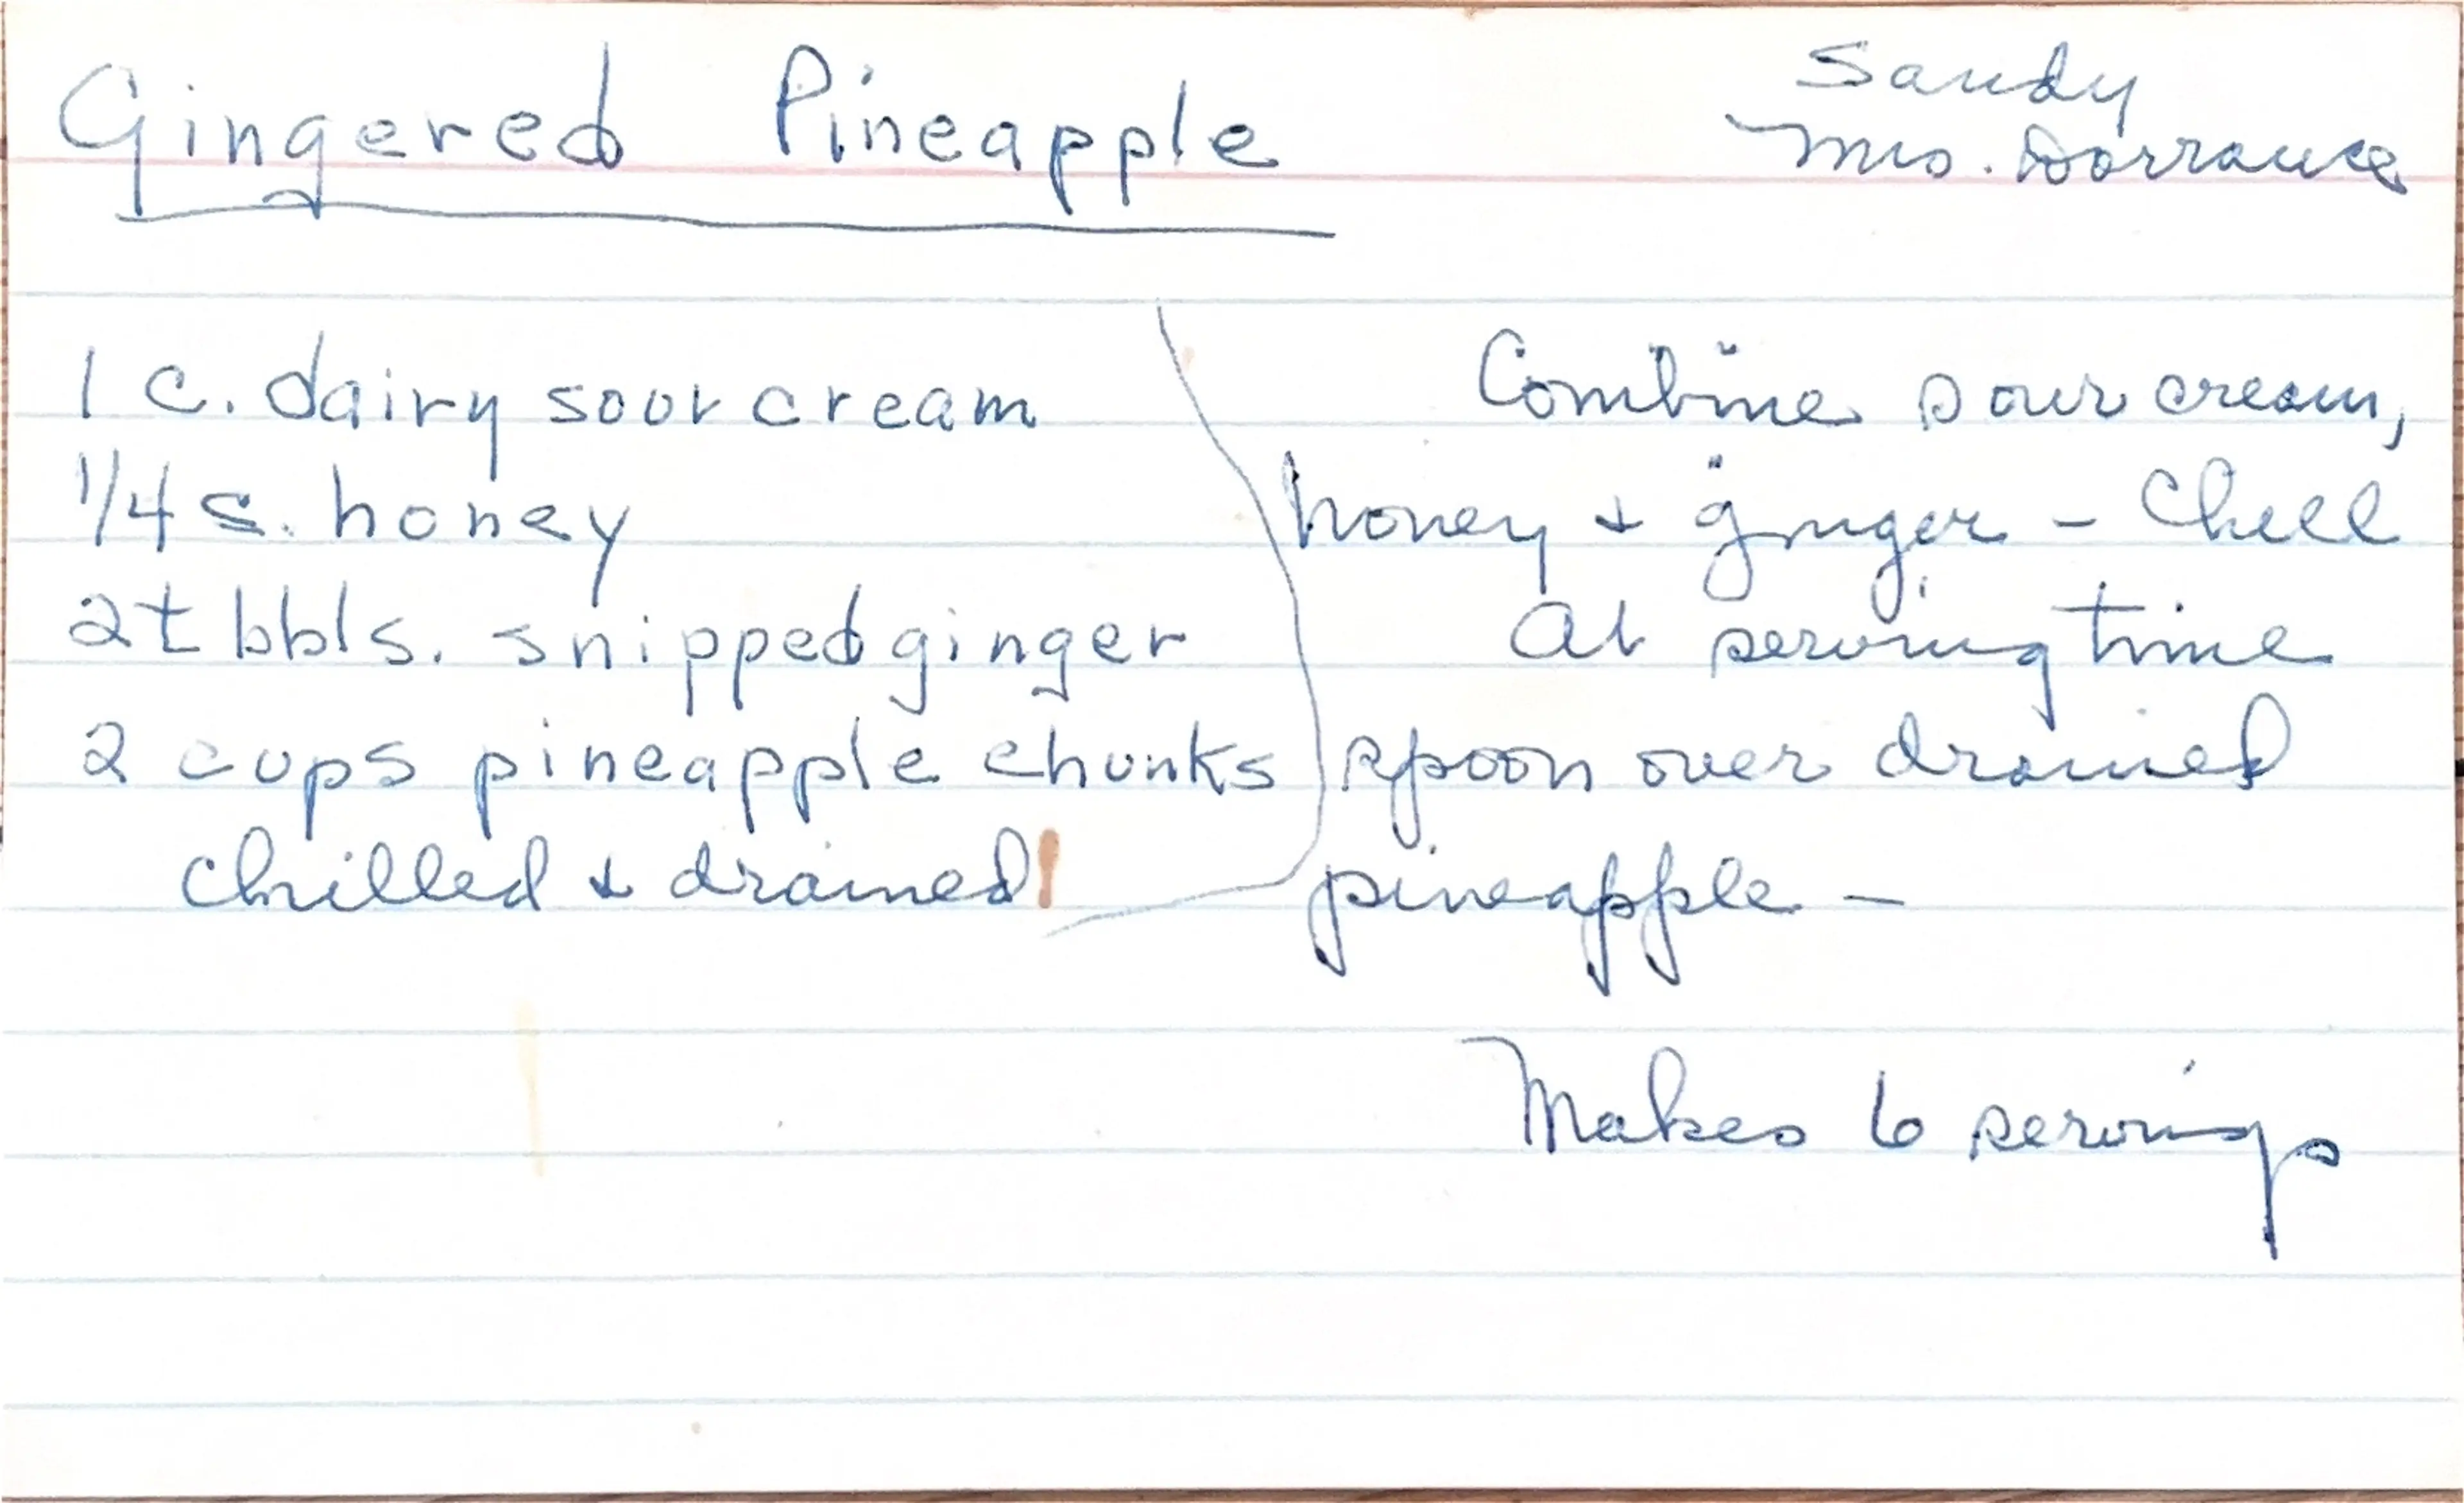 Gingered Pineapple
Sandy
Mrs. Dorrance
1 c. dairy sour cream
1/4 c. honey
2 tbbls. snipped ginger
2 cups pineapple chunks
chilled & drained
Combine sour cream,
honey & ginger - Chill
At serving time
spoon over drained
pineapple -
Makes 6 servings